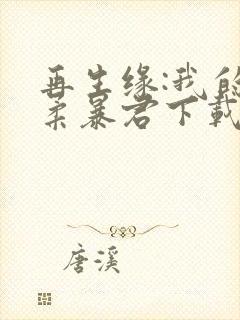 再生缘:我的
柔暴君下载
唐溪